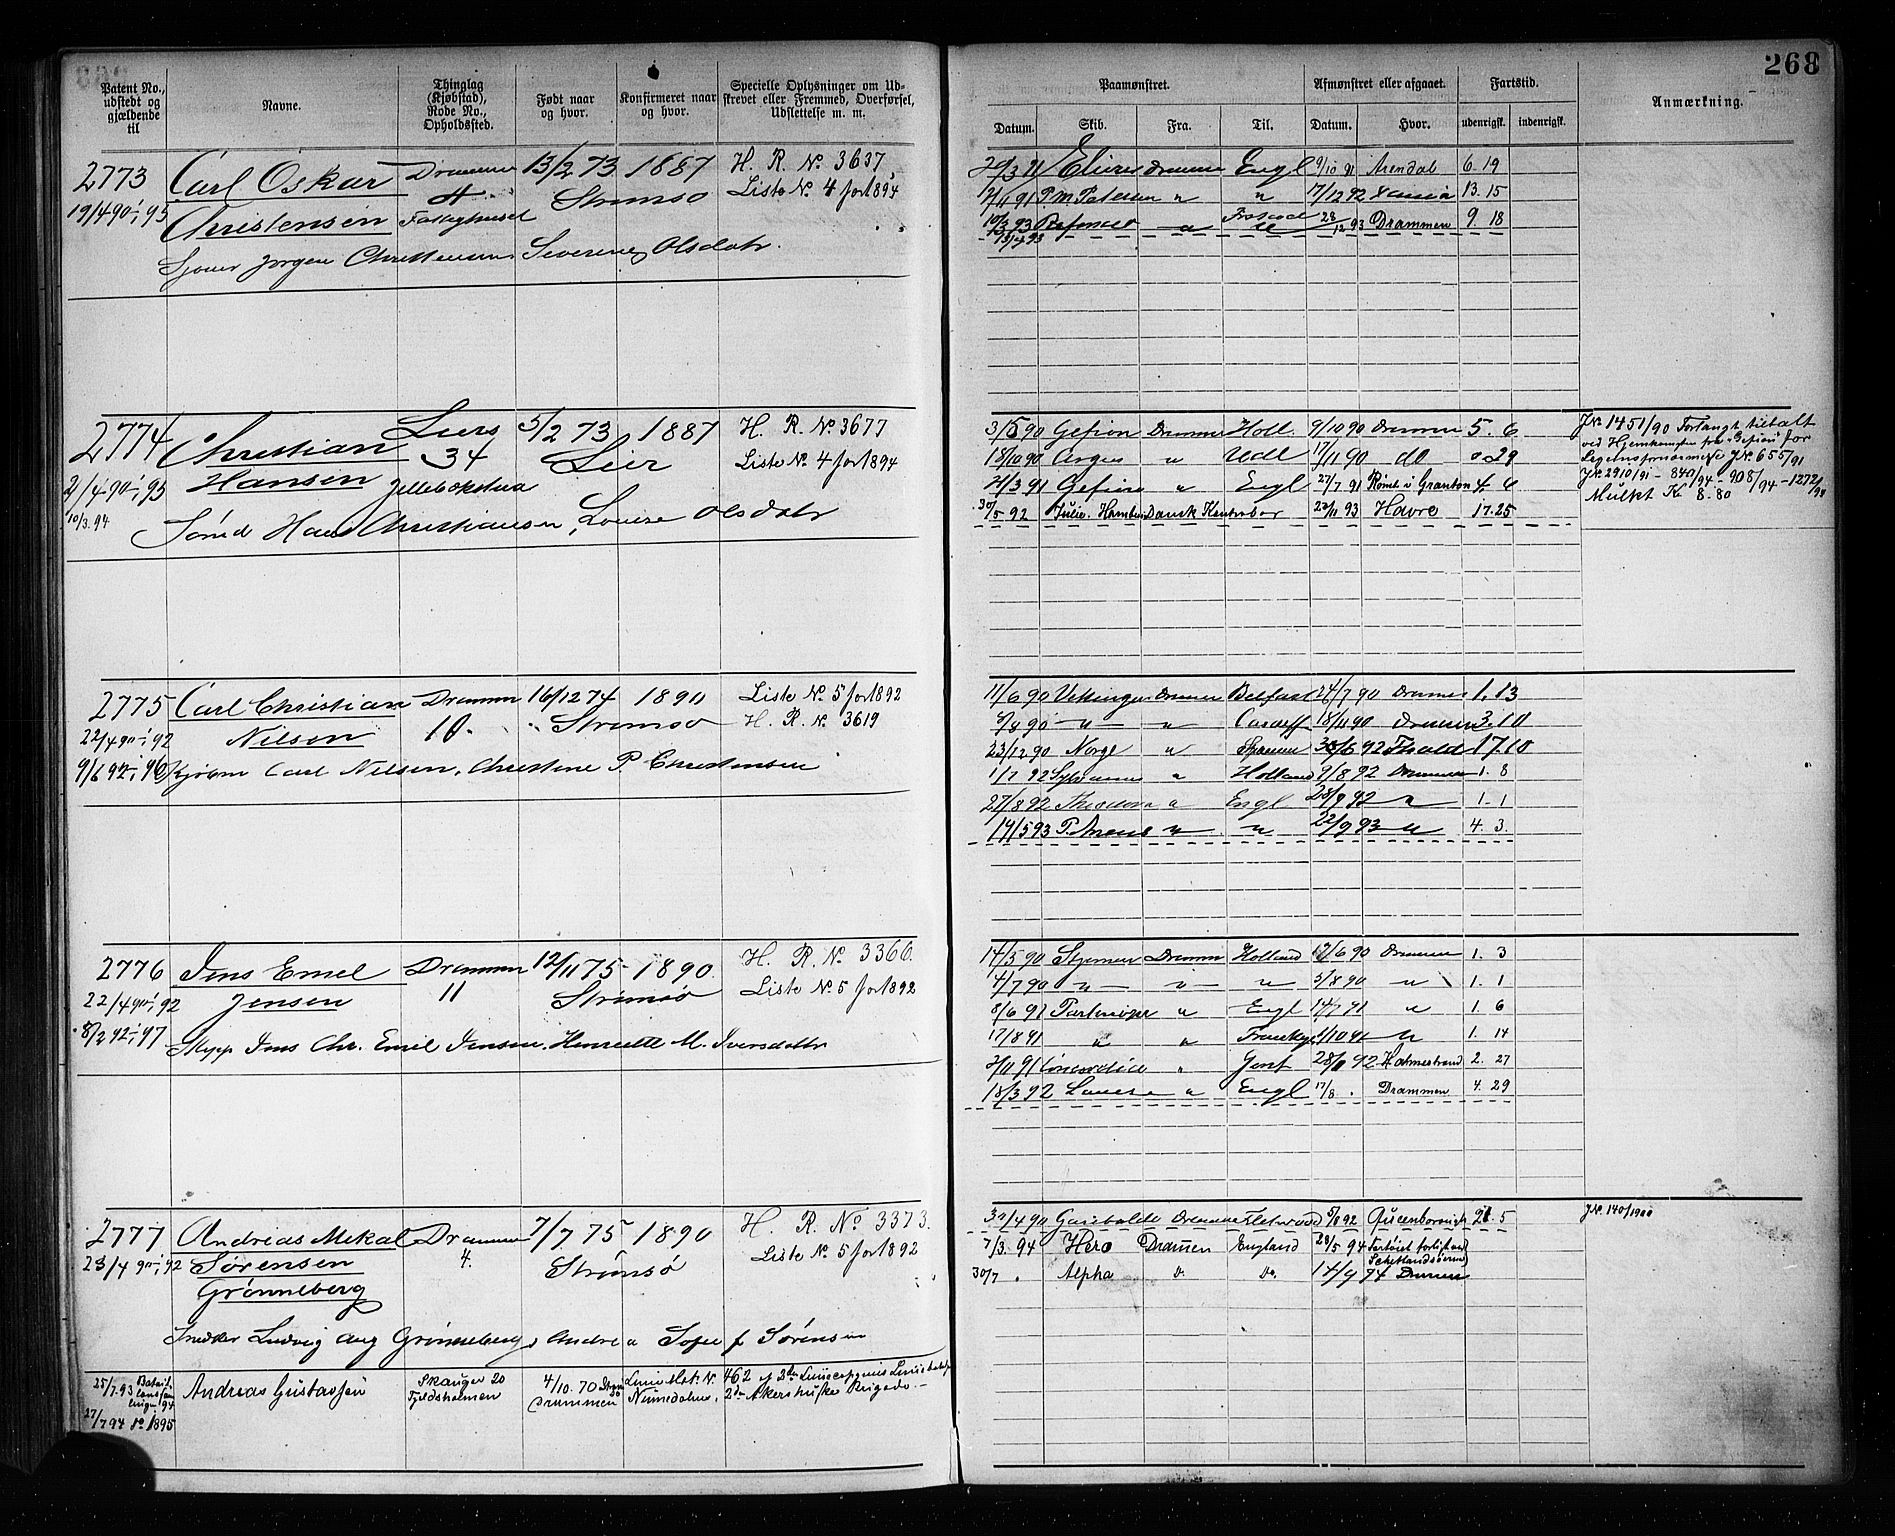 268
Patent No., udstedt og gjældende til
Navne.
Thinglag (Kjøbstad), Rode No., Opholdssted.
Født naar og hvor.
Konfirmeret naar og hvor.
Specielle Oplysninger om Udskrevet eller Fremmed, Overførsel, Udslettelse m. m.
Paamønstret.
Afmønstret eller afgaaet.
Fartstid.
Anmærkning.
Datum. Skib. Fra. Til. Datum. Hvor. udenrigsk. indenrigsk.
2773 Carl Oskar Drammen 13/2 73 1887 H. R. No. 3637
19/4 90-1/1 95 Christensen Strømsø Liste No. 4 for 1894
Jørgen Christensen, Severine Olsdatr.
Drammen Engl 9/10 91 Arendal 6. 19
P. M. Petersen " " 17/12 92 13. 15
28/12 93 Drammen 9. 18
2774 Christian Liers 5/2 73 1887 H. R. No. 3677
Hansen 34 Lier Liste No. 4 for 1894
2/4 90-1/1 95
10/3. 94 Hans Christiansen, Louise Olsdatr
3/5 90 Gefion Drammen Holl. 9/10 90 Drammen 5. 6
18/10 90 Argus " Udl 17/11 90 do 0 29
21/3 91 Gefion " Engl 27/7 91 Rømt i Granton 4. 6
30/5 92 Julie. Hamburg Dansk 22/11 93 Havre 17. 25
J.No. 1451/90 Forlangt tiltalt
ved Hjemkomsten fra "Gefion" for
J.No. 655/91
J.No. 2910/91 - 840/94 - 908/94 - 1272/94
Mulkt Kr 8.80
2775 Carl Christian Drammen 16/12 74 1890 Liste No. 5 for 1892
22/4 90-1/1 92 Nilsen 10. Strømsø H. R. No. 3619
9/6 92-1/1 96 Carl Nilsen, Christine P. Christensen
11/6 90 Vikingen Drammen Belfast 24/7 90 Drammen 1. 13
" Cardiff 18/11 90 Drammen 3. 10
23/12 90 Norge " 92 17. 10
1/7 92 " Holland 9/8 92 Drammen 1. 8
27/8 92 Theodora " Engl 28/9 92 " 1. 1
19/5 93 P. " " 22/9 93 " 4. 3.
2776 Jens Emel Drammen 12/11 75 1890. H. R. No 3360.
22/4 90-1/1 92 Jensen 11 Strømsø Liste No. 5 for 1892
8/2 92-1/1 97
Skipp Jens Chr. Emil Jensen, Henriette M. Iversdatr
14/5 90 Stjernen Drammen Holland 12/6 90 Drammen 1. 3
4/7 90 " " " 5/8 90 " 1. 1
8/6 91 " Engl 14/7 91 " 1. 6
17/8 91 " " " 1. 14
2/11 91 Concordia " Gent 92 Holmestrand 2. 27
18/3 92 Louise " Engl 17/8 . Drammen 4. 29
2777 Andreas Mekal Drammen 7/7 75 1890 H. R. No 3373.
23/4 90-1/1 92 Sørensen 4. Strømsø Liste No. 5 for 1892
Grønneberg
Snedker Ludvig Aug Grønneberg, Andrea Sofie f Sørensen
30/4 90 Garibaldi Drammen Fleetwood 5/8 92 Queenborough 5
7/3. 94 Hero Dramen England 28/5 94 Fartøiet forlist ved Schetlandsøerne
30/7 . Alpha Do. Do. 14/9 94 Drammen
J.No. 140/1900
25/7. 93 Andreas Gustavsen Skauger 20 4/10. 70 Drammen
27/7 94 do 1895 Fjeldsholmen 2den Akershuske Brigade.